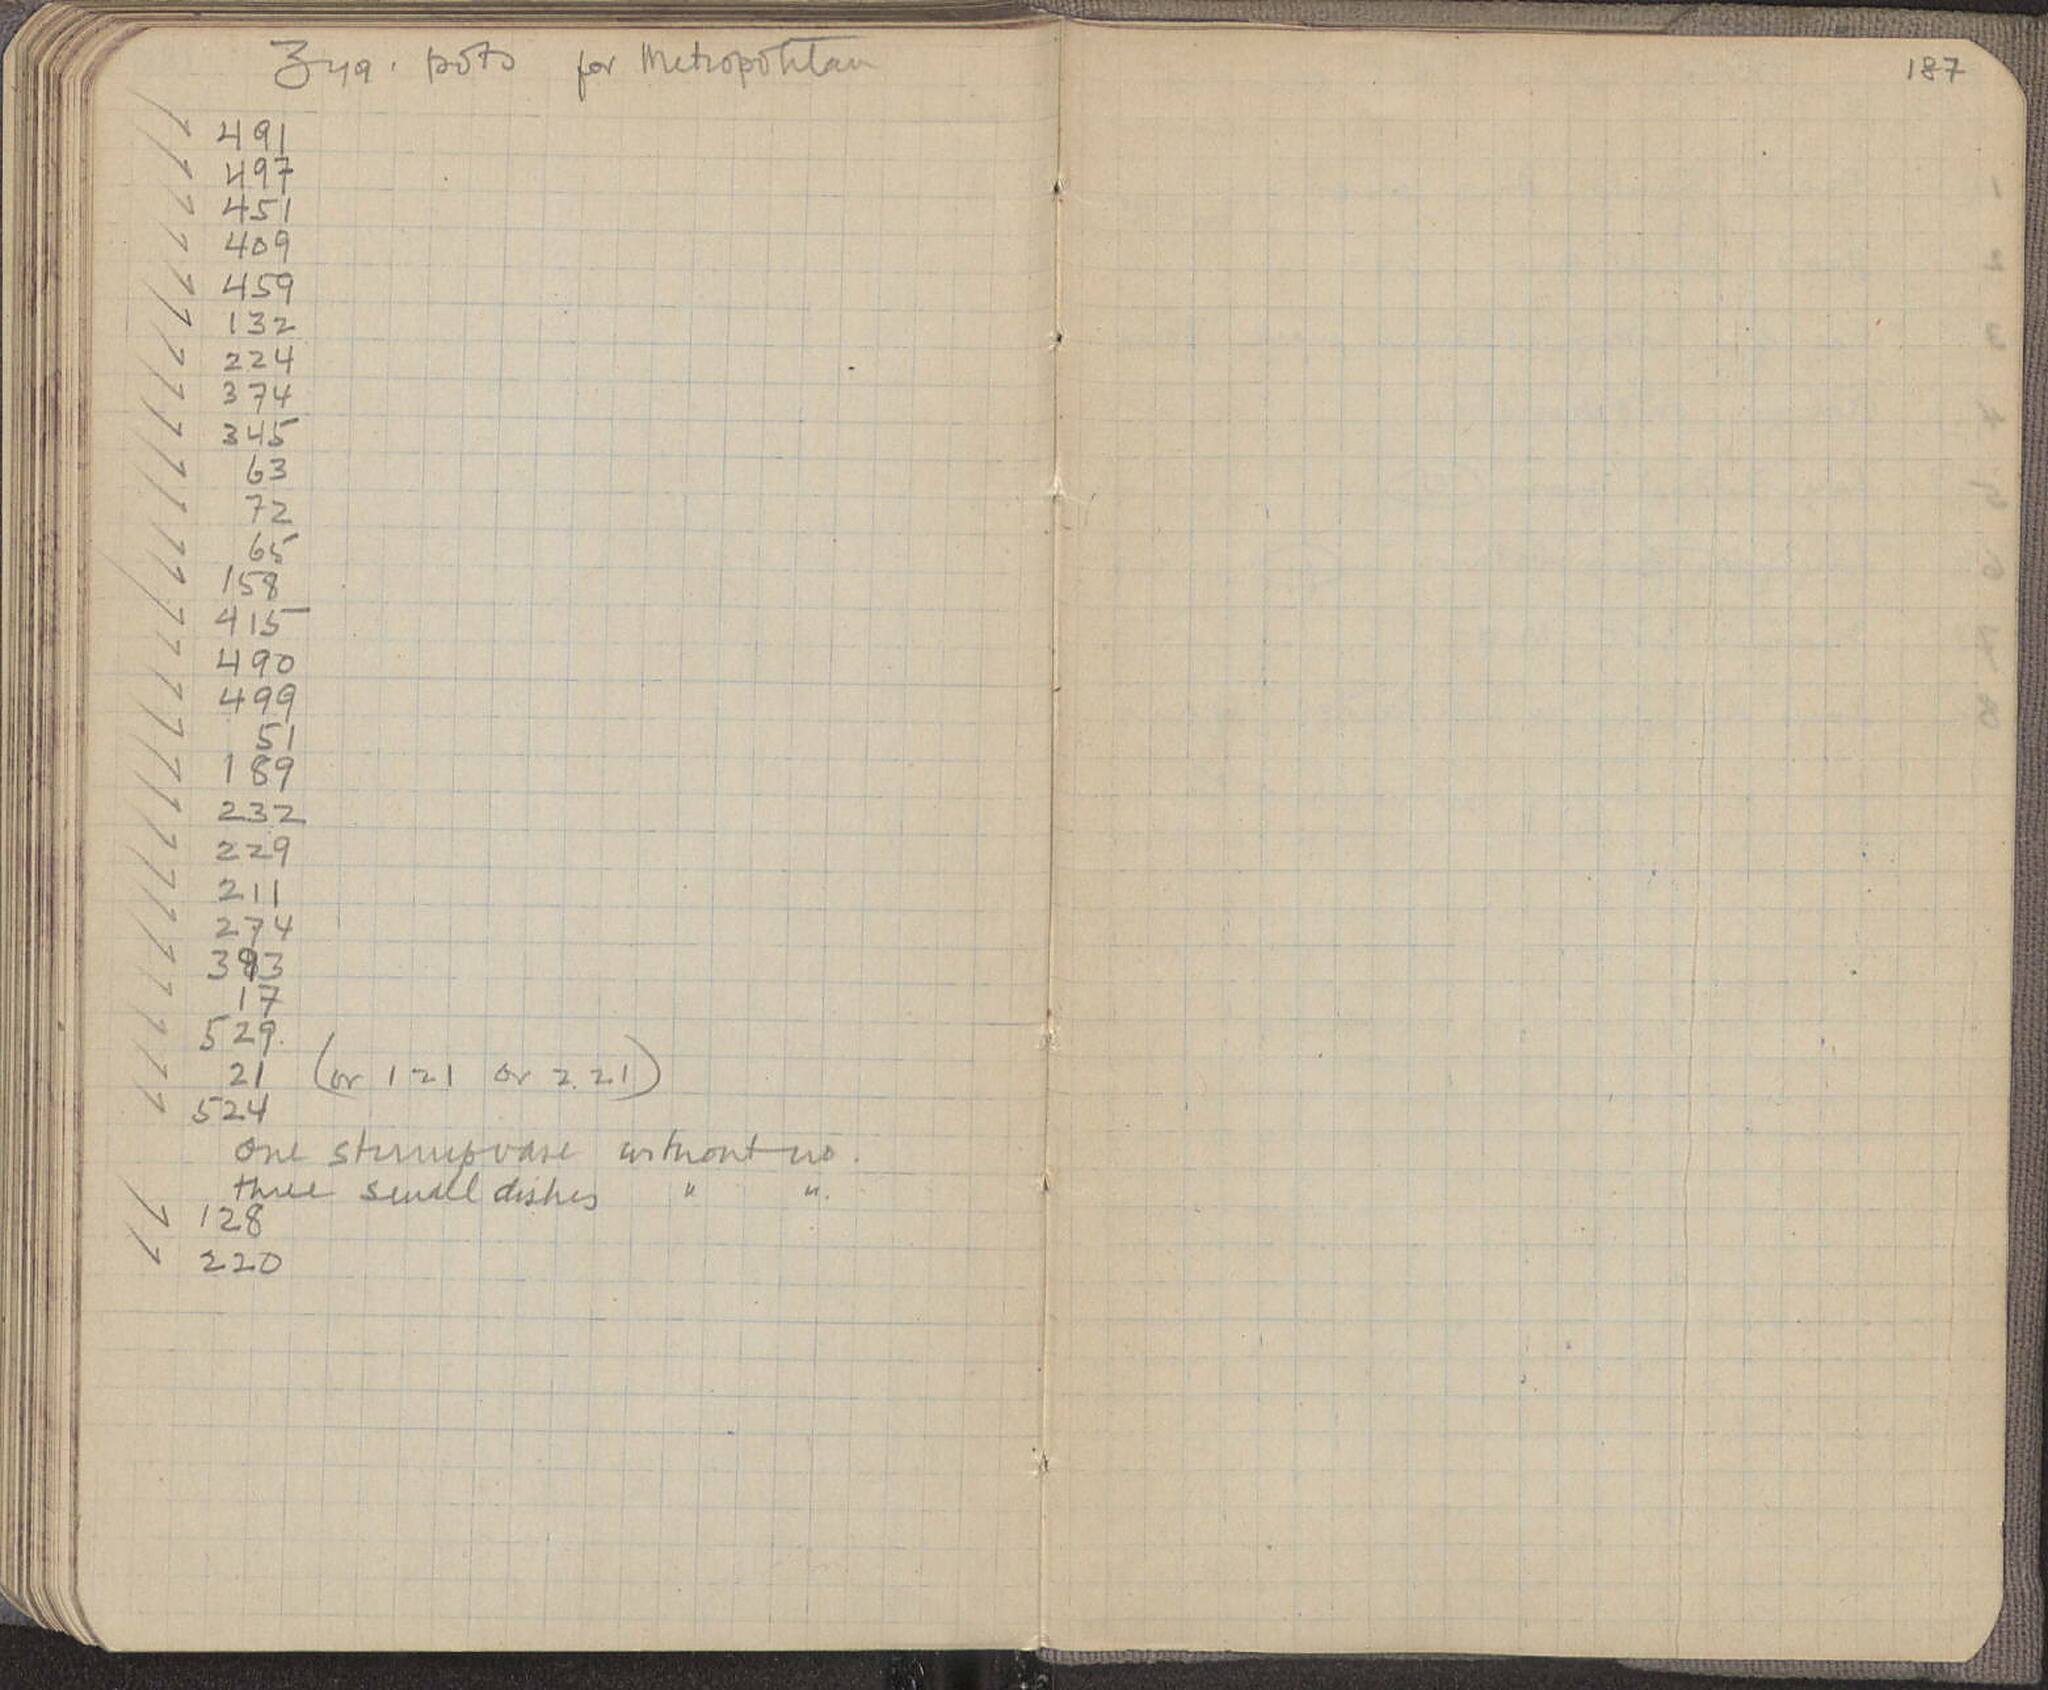 Zyg. pots for Metropolitan
491
497
451
409
459
132
224
374
345
63
72
65
158
415
490
499
51
189
232
229
211
274
393
17
529.
21 (or 121 or 221)
524
One stirrupvase without no.
three small dishes " ".
128
220
187